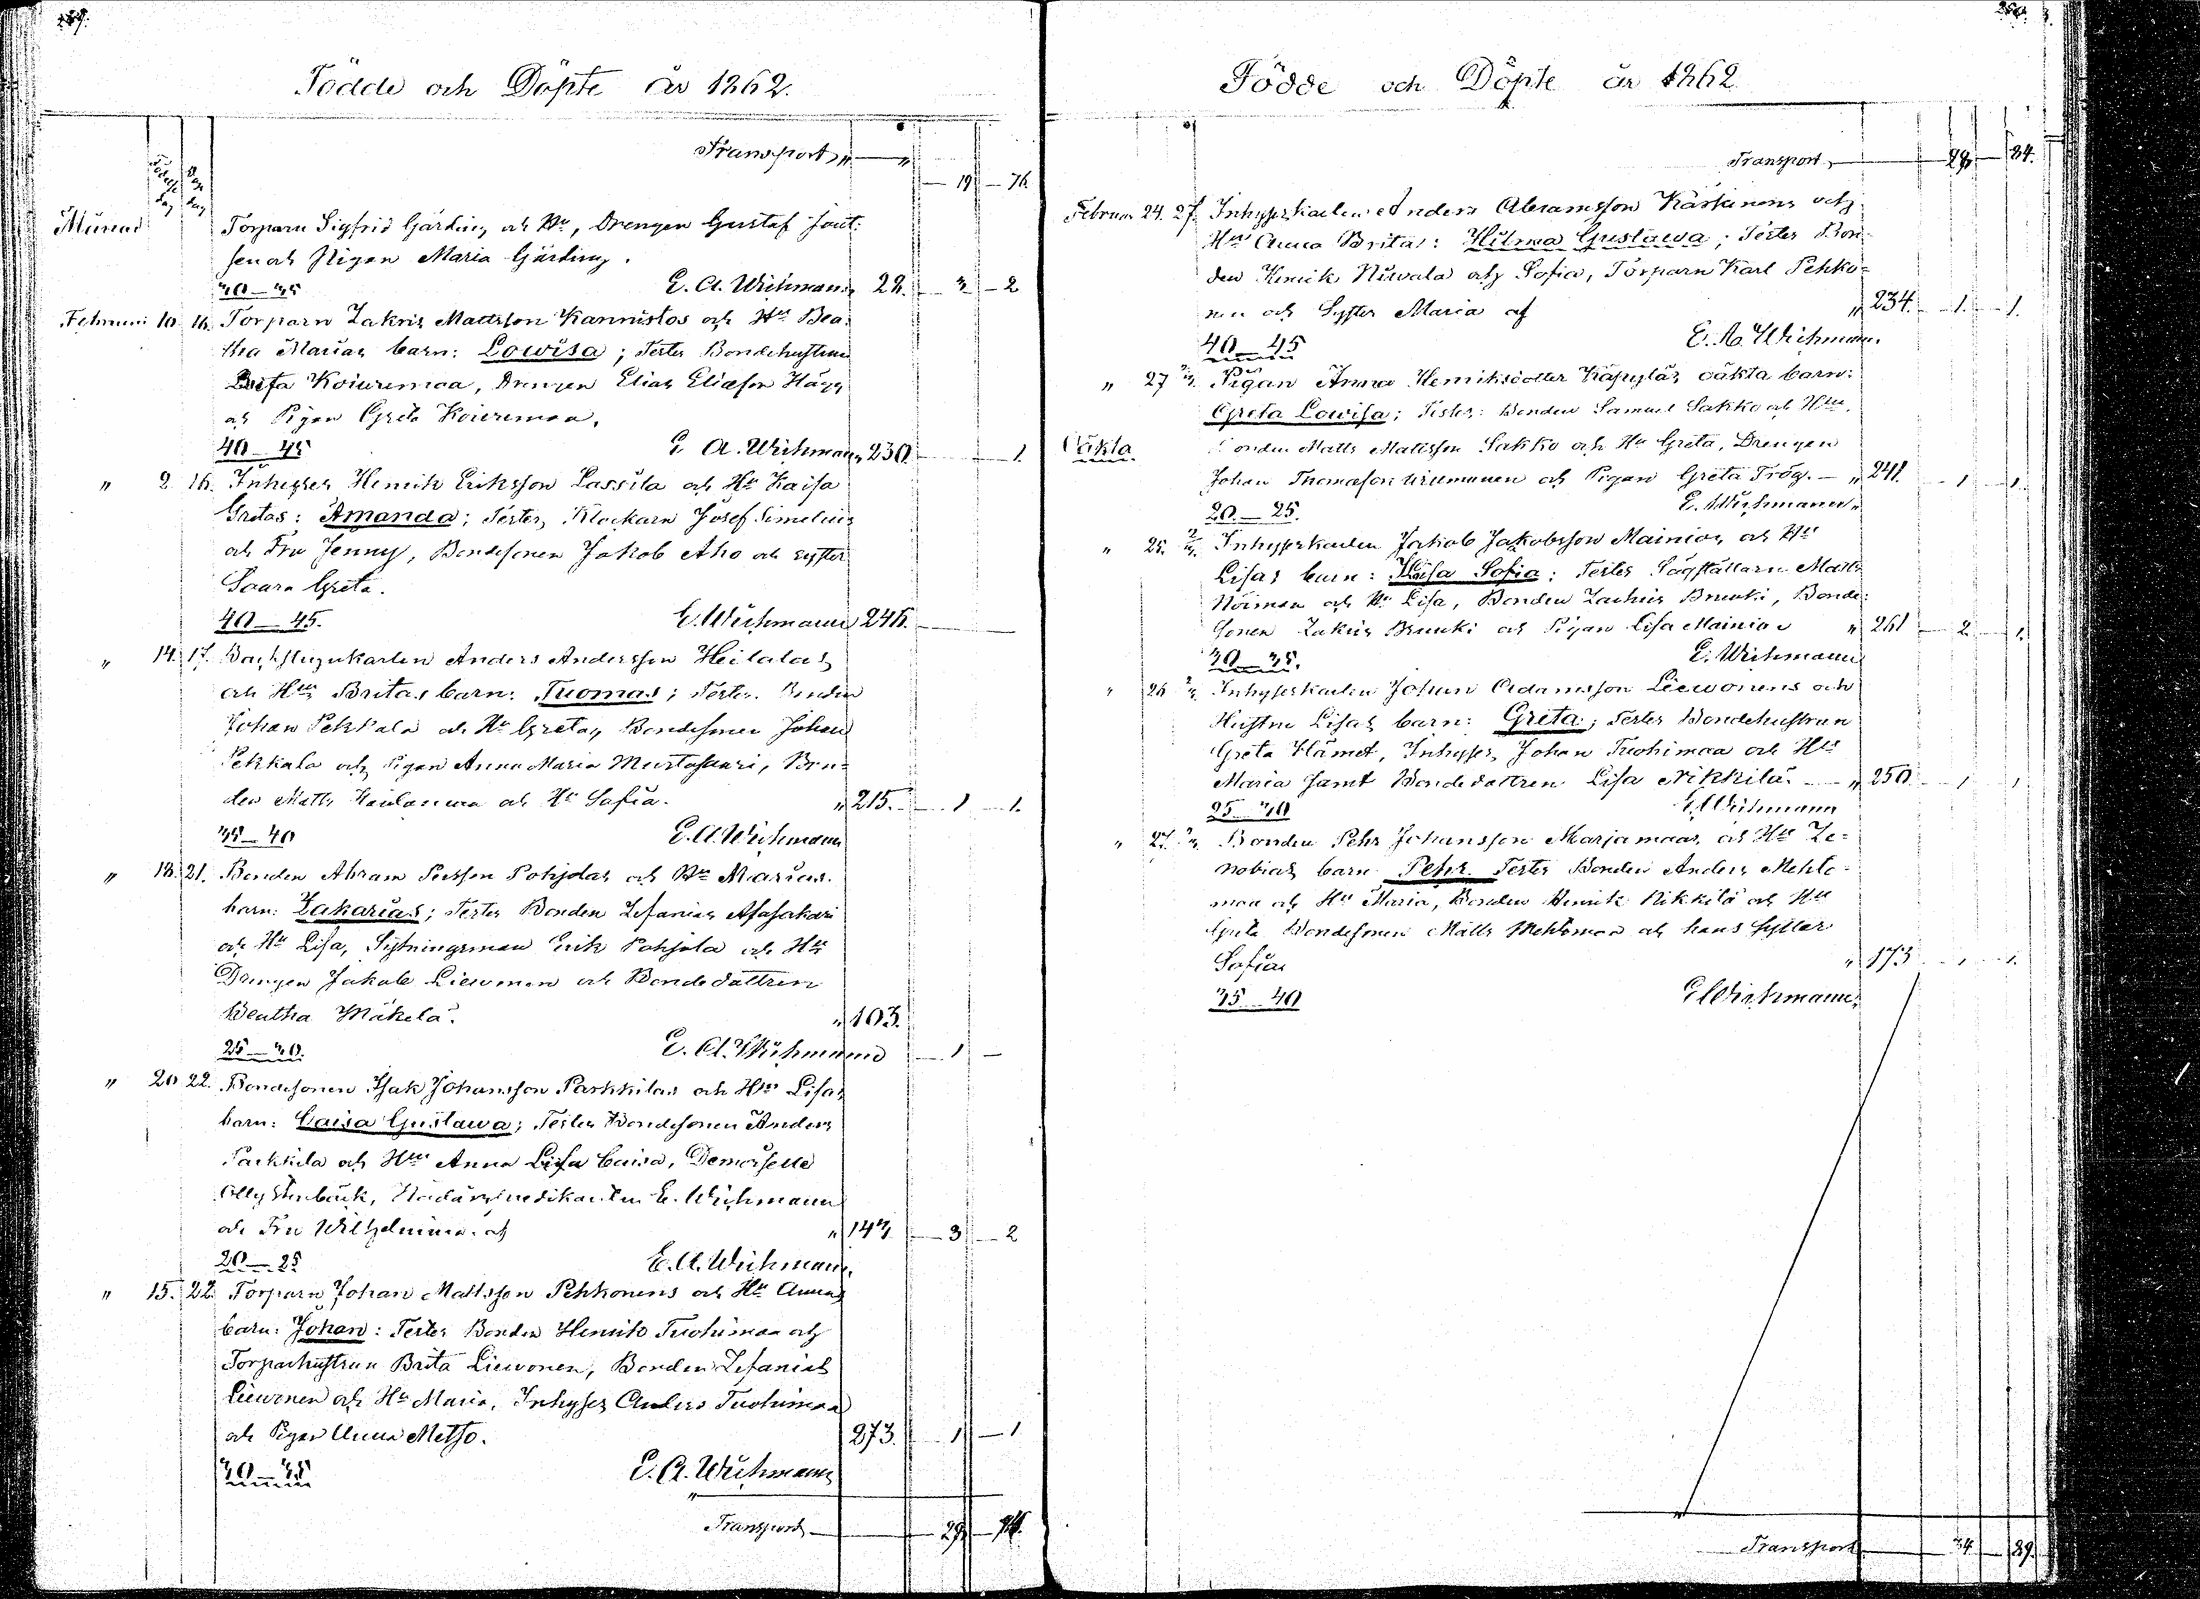 Födde och Döpte år 1862.
Transport „ — „
— 19 — 76
Månad
Födelse dag
Dop dag
Torparn Sigfrid Gärding och Hu, Drengen Gustaf
sen och Pigan Maria Gärding.
30—35 E. A. Wichmann 28. — 3 — 2
Februari 10 16. Torparn Zakris Mattsson Kannistos och Hu Bea-
tha Marias barn: Lowisa; Tester Bondehustrun
Koiuremaa, Drengen Elias Eliasson Hägg
och Pigan Greta Koiuremaa.
40—45 E. A. Wichmann 230. — 1.
„ 9 16. Inhyses Henrik Eriksson Lassila och Hu Kaisa
Gretas: Amanda; Tester, Klockarn Josef Simelius
och Fru Jenny, Bondesonen Jakob Aho och syster
Saara Greta.
40—45. E. Wichmann 246. —
„ 14. 17. Backstugukarlen Anders Andersson Heilalas
och Hus Britas barn: Tuomas; Tester. Bonden
Johan Pekkala och Hu Greta, Bondesonen Johan
Pekkala och Pigan Anna Maria Mustasaari, Bon-
den Matts och Hu Sofia. „ 215. — 1 — 1.
35—40 E. A. Wichmann
„ 18. 21. Bonden Abram Persson Pohjolas och Hu Marias
barn: Zakarias; Tester Bonden Zefanias Asasakari
och Hu Lisa, Sytningsman Erik Pohjola och Hu
Drengen Jakob Liewonen och Bondedottren
Beatha Mäkelä. „ 103.
25—30. E. A. Wichmann — 1 —
„ 20 22. Bondesonen Isak Johansson Parkkilas och Hus Lisas
barn: Caisa Gustawa; Tester Bondesonen Anders
Parkkila och Hu Anna Lisa Caisa, Demoiselle
Olly Stenbäck, Nådårspredikanten E. Wichmann
och Fru Wilhelmina. af „ 147 — 3 — 2
20—25 E. A. Wichmann.
„ 15. 22. Torparn Johan Mattsson Pehkonens och Hu Annas
barn: Johan: Tester Bonden Henrik Tuohimaa och
Torparhustrun Brita Liewonen, Bonden Zefanias
Liewonen och Hu Maria, Inhyses Anders Tuohimaa
och Pigan Anna Metso. 273. — 1 — 1
30—35 E. A. Wichmann
Transport — 29 —
Födde och Döpte år 1862
Transport, — 29 — 84.
Februari 24. 27. Inhyseskarlen Anders Abramsson Kärkinens och
Hus Anna Britas: Hilma Gustawa; Tester Bon-
den Henrik Niwala och Sofia, Torparn Karl Pehko-
nen och Syster Maria af „ 234. — 1. — 1.
40—45 E. A. Wichmann.
„ 27 Pigan Anna Henriksdotter Käpyläs oäkta barn:
Greta Lowisa; Tester: Bonden Samuel Sakko och Hu,
Oäkta Bonden Matts Mattsson Sakko och Hu Greta, Drengen
Johan Thomasson och Pigan Greta Trög. — „ 241. 1 1.
20.—25. E. Wichmann.
„ 25. Inhyseskarlen Jakob Jakobsson Mainios och Hu
Lisas barn: Kaisa Sofia; Tester Sågställarn Matts
och Hu Lisa, Bonden Zachris Brunki, Bonde-
sonen Zakris Brunki och Pigan Lisa Mainio „ 261 — 2 — 1.
30—35. E. Wichmann
„ 26 Inhyseskarlen Johan Adamsson Liewonens och
Hustru Lisas barn: Greta; Tester Bondehustrun
Greta Hämet, Inhyses Johan Tuohimaa och Hu
Maria samt Bondedottren Lisa Nikkilä. — „ 250 1 1
25—30 E. Wichmann
„ 27. Bonden Pehr Johansson Marjamaas, och Hu Ze-
nobias barn Pehr. Tester Bonden Anders Mehto-
maa och Hu Maria, Bonden Henrik Nikkilä och Hu
Greta Bondesonen Matts Mehtomaa och hans syster
Sofia „ 173 1 1.
35—40 E. Wichmann.
Transport — 34 — 89.